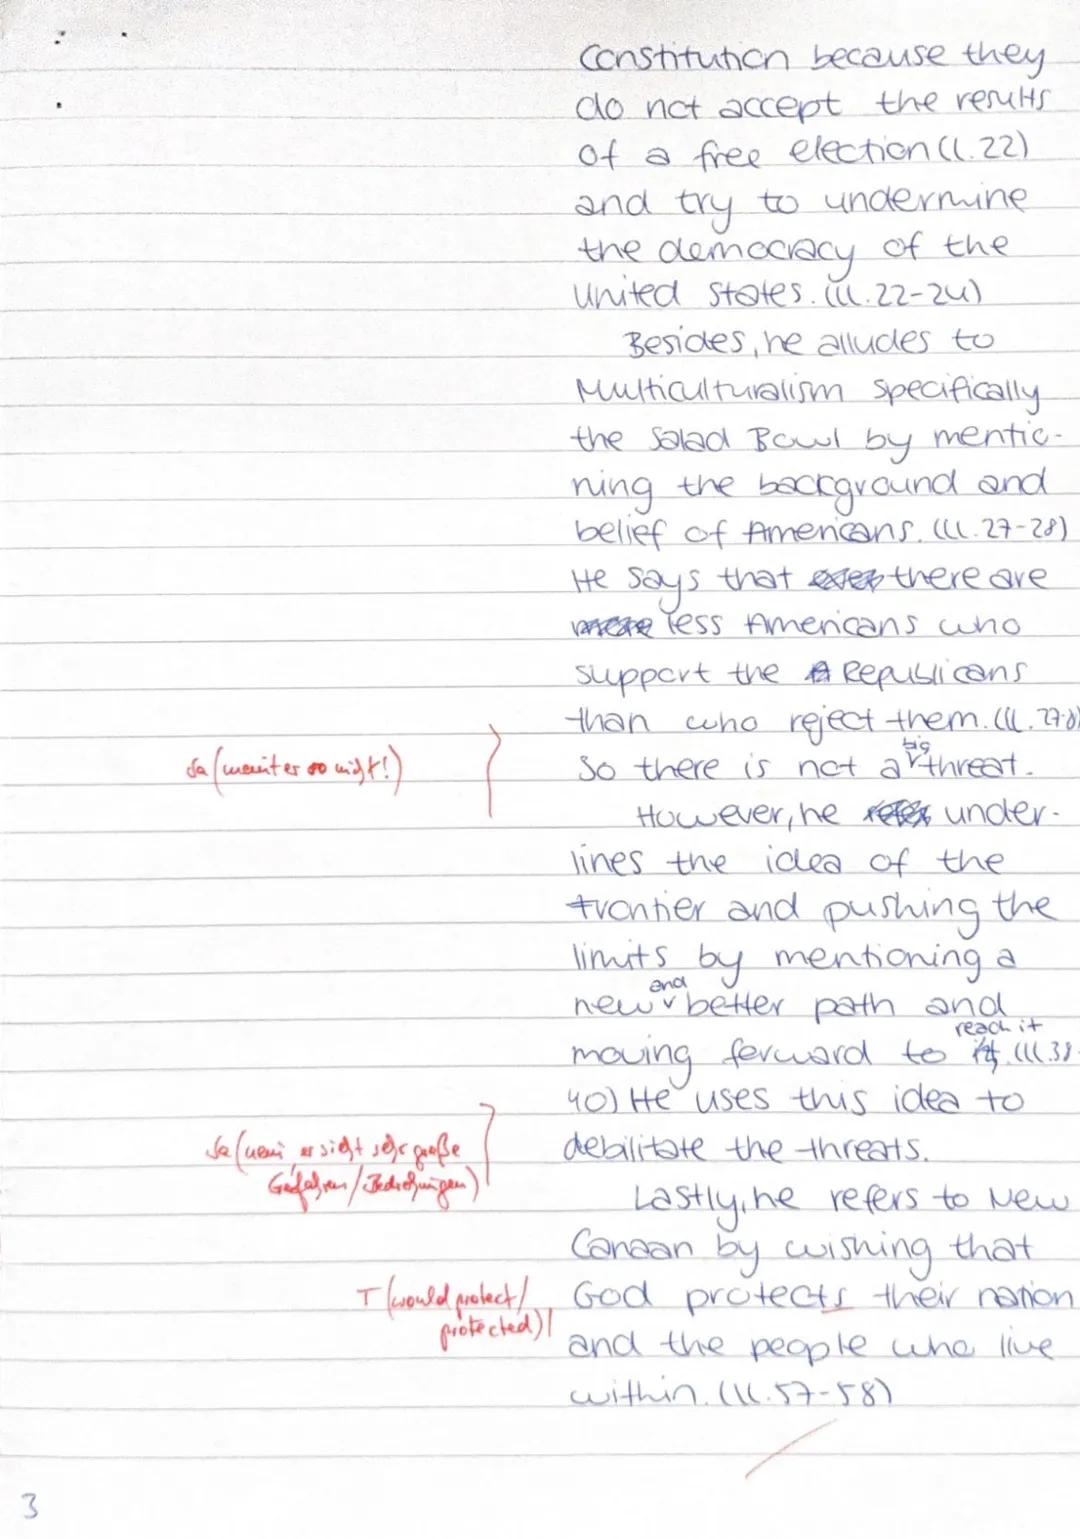 Constitution because they
do not accept the results
of a free election (l. 22)
and try to undermine
the democracy of the
United States. (ll. 22-24)
Besides, he alludes to
Multiculturalism specifically
the Salad Bowl by mentio-
ning the background and
belief of Americans. (ll. 27-28)
He says that there are
less Americans who
support the Republicans
than who reject them. (ll. 27-8)
Sa (meint er so nicht!)
big
So there is not a threat.
However, he under-
lines the idea of the
frontier and pushing the
limits by mentioning a
and
new better path and
reach it
moving forward to (ll. 38-
40) He uses this idea to
debilitate the threats.
Sa (nein er sieht sehr große
Gefahren/Bedrohungen)
Lastly, he refers to New
Canaan by wishing that
God protects their nation
T (would protect/
protected)
and the people who live
within. (ll. 57-58)
3